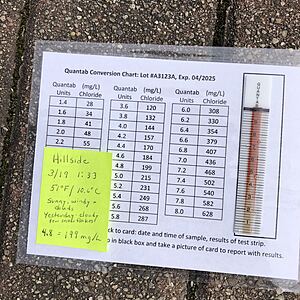 Quantab Conversion Chart: Lot #A3123A, Exp. 04/2025
Quantab (mg/L)
Units Chloride
1.4 28
1.6 34
1.8 41
2.0 48
2.2 55
Quantab (mg/L)
Units Chloride
3.6 120
3.8 132
4.0 144
4.2 157
4.4 170
4.6 184
4.8 199
5.0 215
5.2 231
5.4 249
5.6 268
5.8 287
Quantab (mg/L)
Units Chloride
6.0 308
6.2 330
6.4 354
6.6 379
6.8 407
7.0 436
7.2 468
7.4 502
7.6 540
7.8 582
8.0 628
QUANTAB
Hillside
3/19 1:33
51°F/10.6°C
Sunny, windy +
clouds
Yesterday cloudy
few snowflakes!
4.8 = 199 mg/L
ck to card: date and time of sample, results of test strip.
p in black box and take a picture of card to report with results.